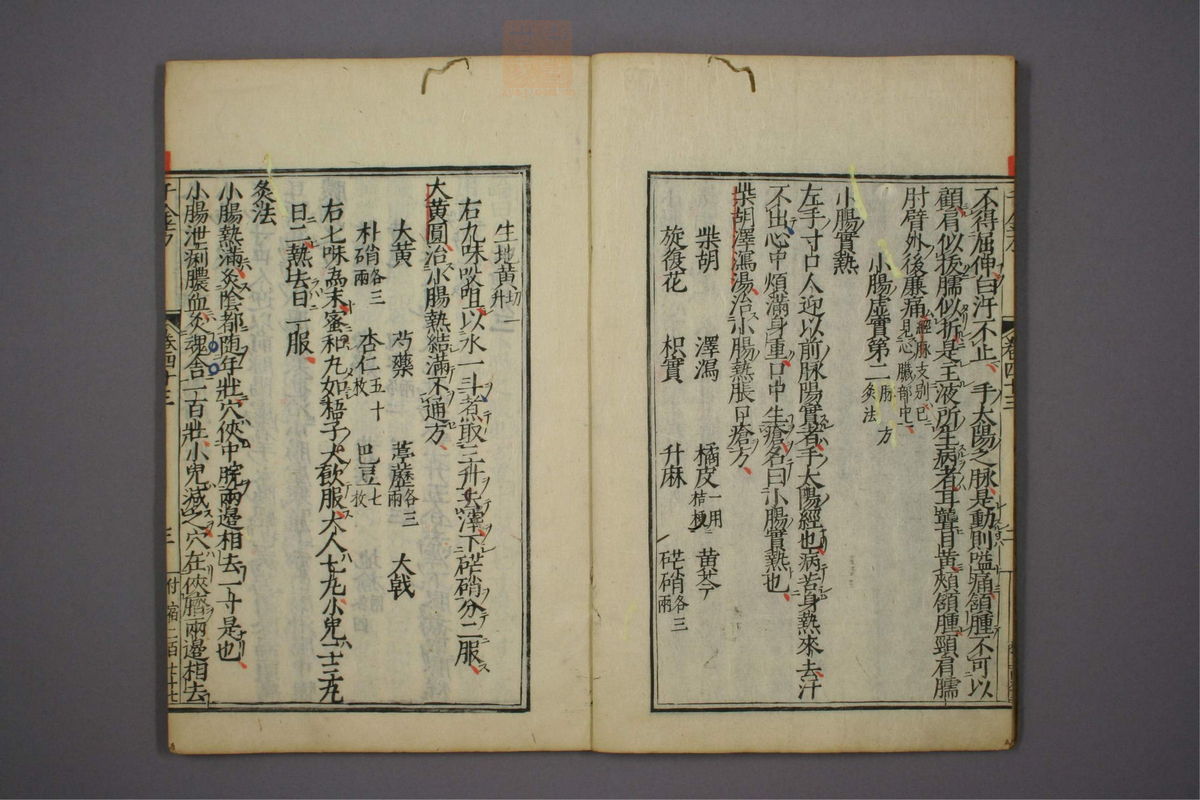 不得屈伸白汗不止手太陽之脉是動則嗌痛頷腫不可以
顧肩似拔臑似折是主液所生病者耳聾目黃頰頷腫頸肩臑
肘臂外後廉痛經脉支別已見心臟部中
小腸虛實第二脉方灸法
小腸實熱
左手寸口人迎以前脉陽實者手太陽經也病苦身熱來去汗
不出心中煩滿身重口中生瘡名曰小腸實熱也
柴胡澤瀉湯治小腸熱脹口瘡方
柴胡 澤瀉 橘皮一用桔梗 黃芩
旋復花 枳實 升麻 芒硝各三兩
生地黃切一升
右九味㕮咀以水一斗煮取三升去滓下芒硝分二服
大黃圓治小腸熱結滿不通方
大黃 芍藥 葶藶各三兩 大戟
朴硝各三兩 杏仁五十枚 巴豆七枚
右七味為末蜜和丸如梧子大飲服大人七丸小兒二三丸
日二熱去日一服
灸法
小腸熱滿灸陰都隨年壯穴俠中脘兩邊相去一寸是也
小腸泄痢膿血灸魂舍一百壯小兒減之穴在俠臍兩邊相去